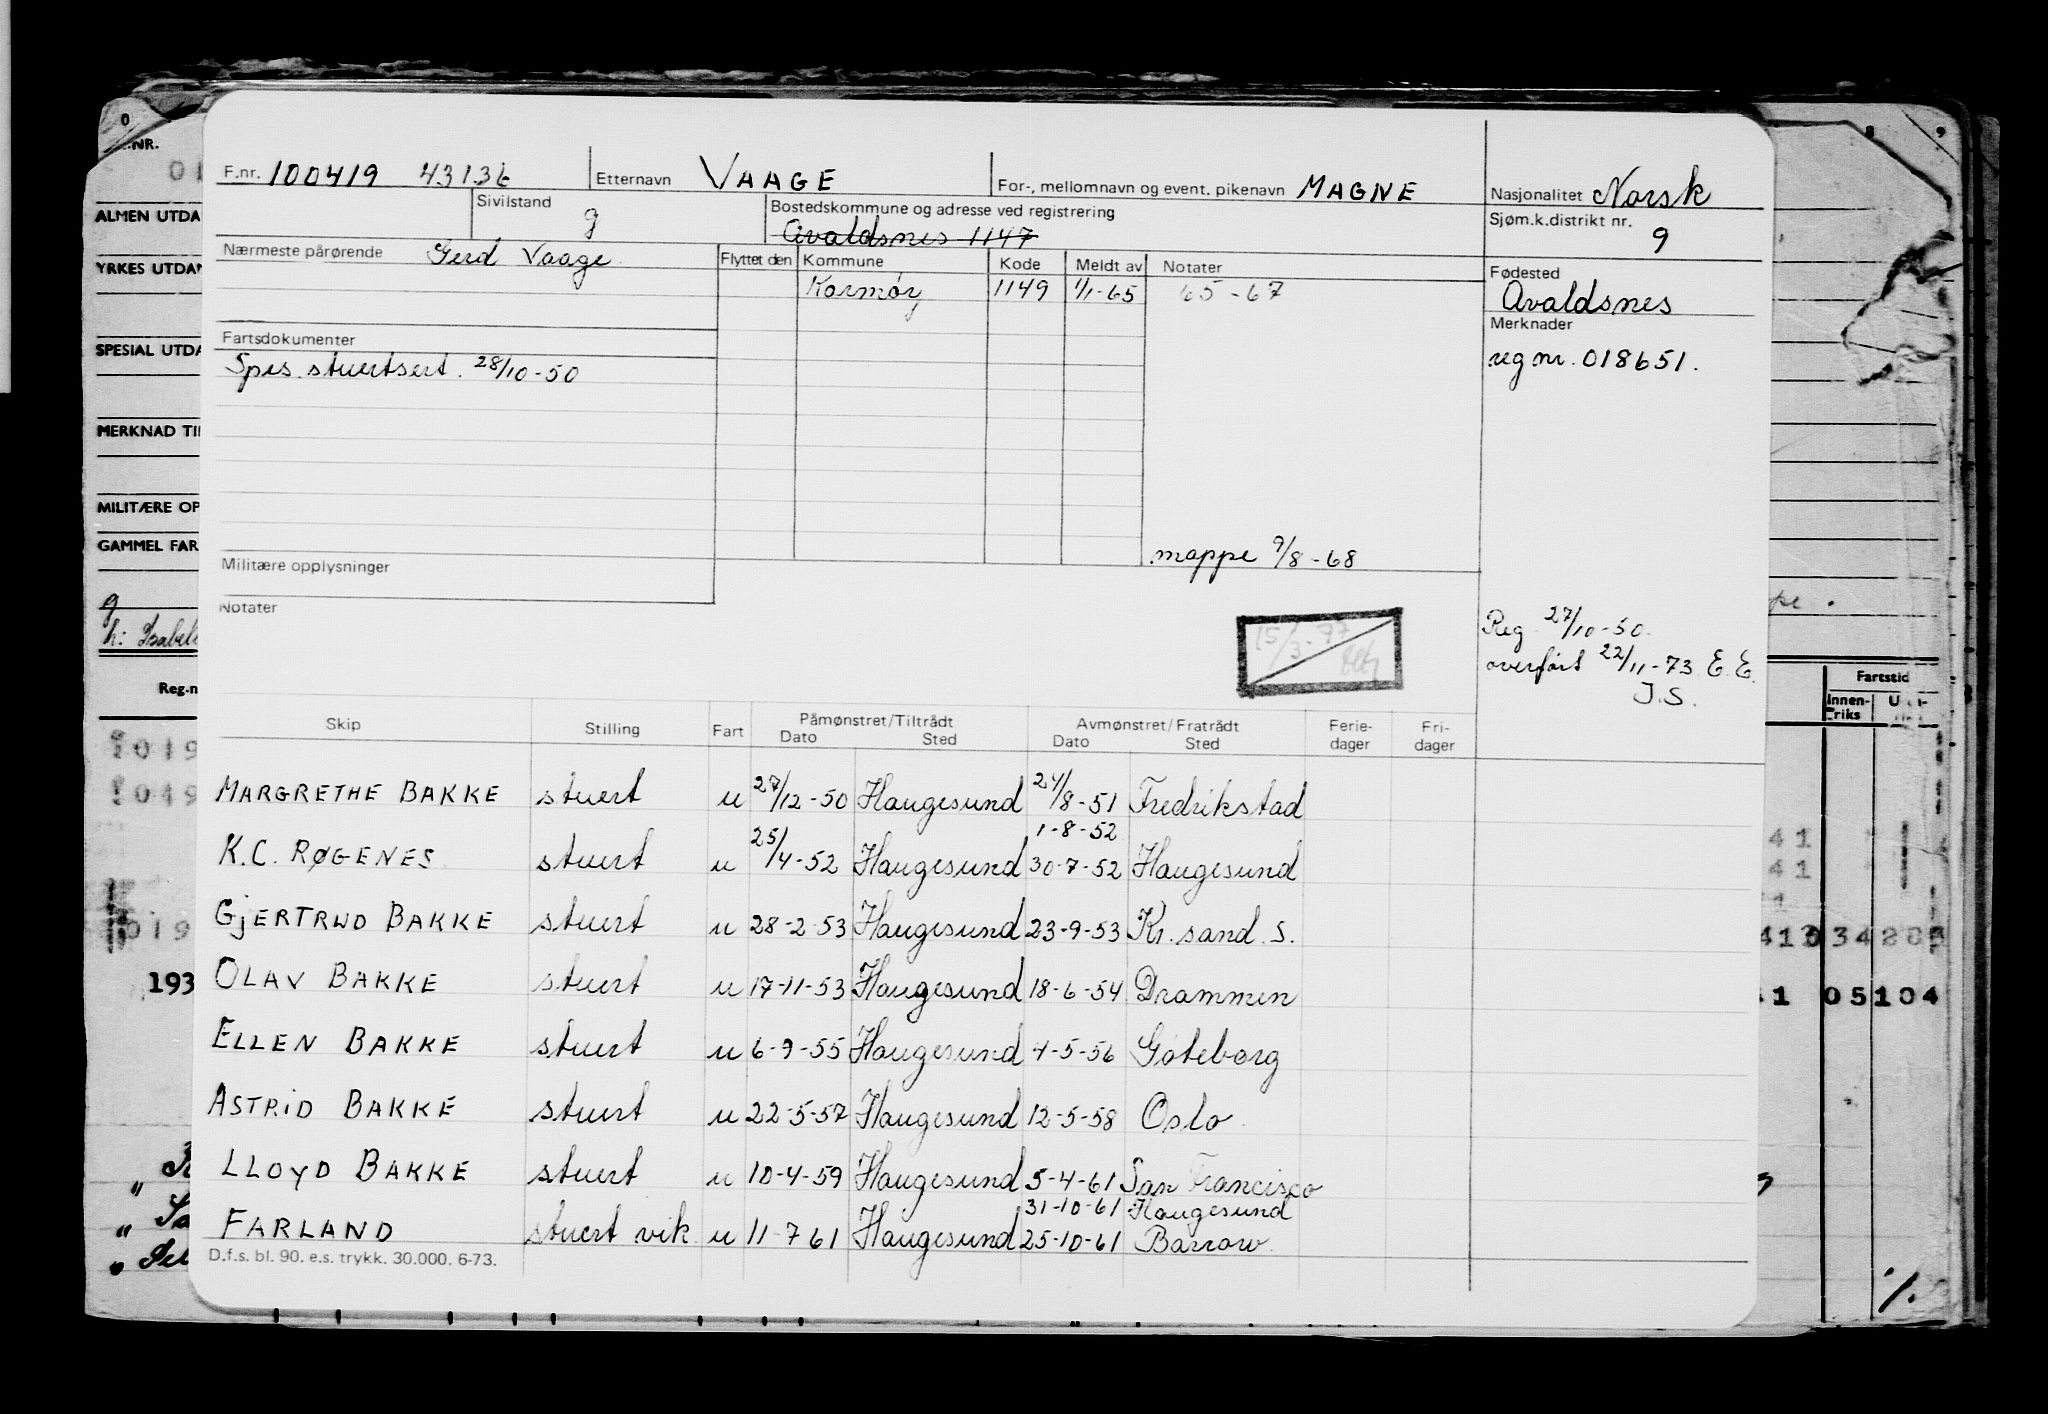 F.nr. 100419 43136 Etternavn VAAGE For-, mellomnavn og event. pikenavn MAGNE Nasjonalitet Norsk
Sivilstand g Bostedskommune og adresse ved registrering Avaldsnes 1147 Sjøm.k.distrikt nr. 9
Nærmeste pårørende Gerd Vaage
Flyttet den Kommune Kode Meldt av Notater
Karmøy 1149 1/1-65 65-67
Fødested
Avaldsnes
Merknader
reg nr. 018651.
Fartsdokumenter
Spes. stuertsert. 28/10-50
mappe 9/8-68
Militære opplysninger
Notater
15/3-77
Reg. 27/10-50.
overført 22/11-73 E.E.
J.S.
Skip Stilling Fart Påmønstret/Tiltrådt Avmønstret/Fratrådt Ferie- Fri-
Dato Sted Dato Sted dager dager
MARGRETHE BAKKE stuert u 27/12-50 Haugesund 24/8-51 Fredrikstad
1-8-52
K.C. RØGENES stuert u 25/4-52 Haugesund 30-7-52 Haugesund
GJERTRUD BAKKE stuert u 28-2-53 Haugesund 23-9-53 Kr.sand.S.
OLAV BAKKE stuert u 17-11-53 Haugesund 18-6-54 Drammen
ELLEN BAKKE stuert u 6-9-55 Haugesund 4-5-56 Gøteborg
ASTRID BAKKE stuert u 22-5-57 Haugesund 12-5-58 Oslo
LLOYD BAKKE stuert u 10-4-59 Haugesund 5-4-61 San Francisco
31-10-61 Haugesund
FARLAND stuert vik. u 11-7 61 Haugesund 25-10-61 Barrow
D.f.s. bl. 90. e.s. trykk. 30.000. 6-73.
0
.NR.
ALMEN UTDA
YRKES UTDAN
SPESIAL UTDA
MERKNAD TI
MILITÆRE OP
GAMMEL FAR
g
h: Isabel
Reg.n
019
049
019
193
8 9
Fartstid
Innen-
riks
41
41
034205
05104